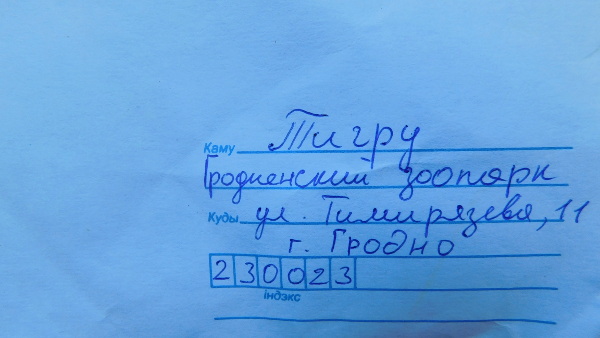 Каму Тигру
Гродненский зоопарк
Куды ул. Тимирязева, 11
г. Гродно
230023
індэкс